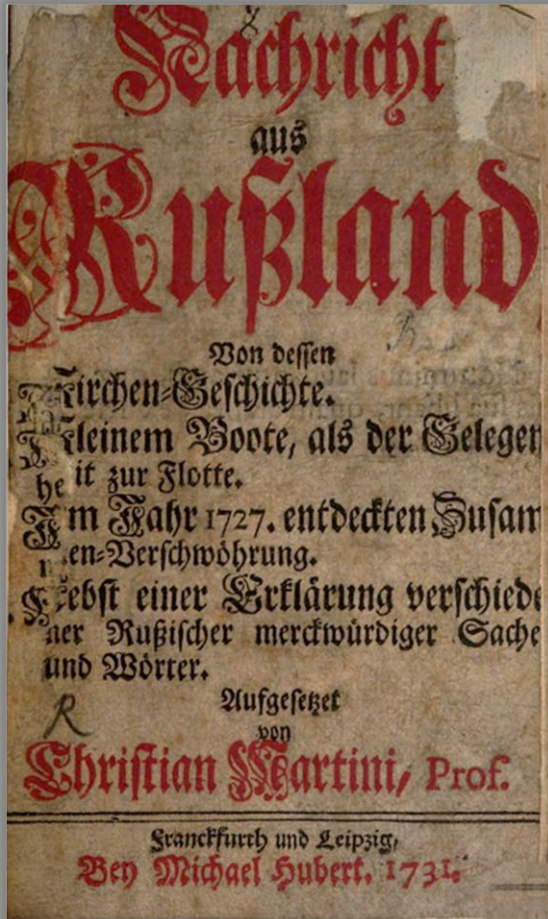 Nachricht
aus
Rußland,
Von dessen
Kirchen-Geschichte.
Kleinem Boote, als der Gelegen
heit zur Flotte.
Im Jahr 1727. entdeckten Zusam
men-Verschwöhrung.
Nebst einer Erklärung verschiede
ner Rußischer merckwürdiger Sache
und Wörter.
Aufgesetzet
von
Christian Martini, Prof.
Franckfurth und Leipzig,
Bey Michael Hubert. 1731.
R